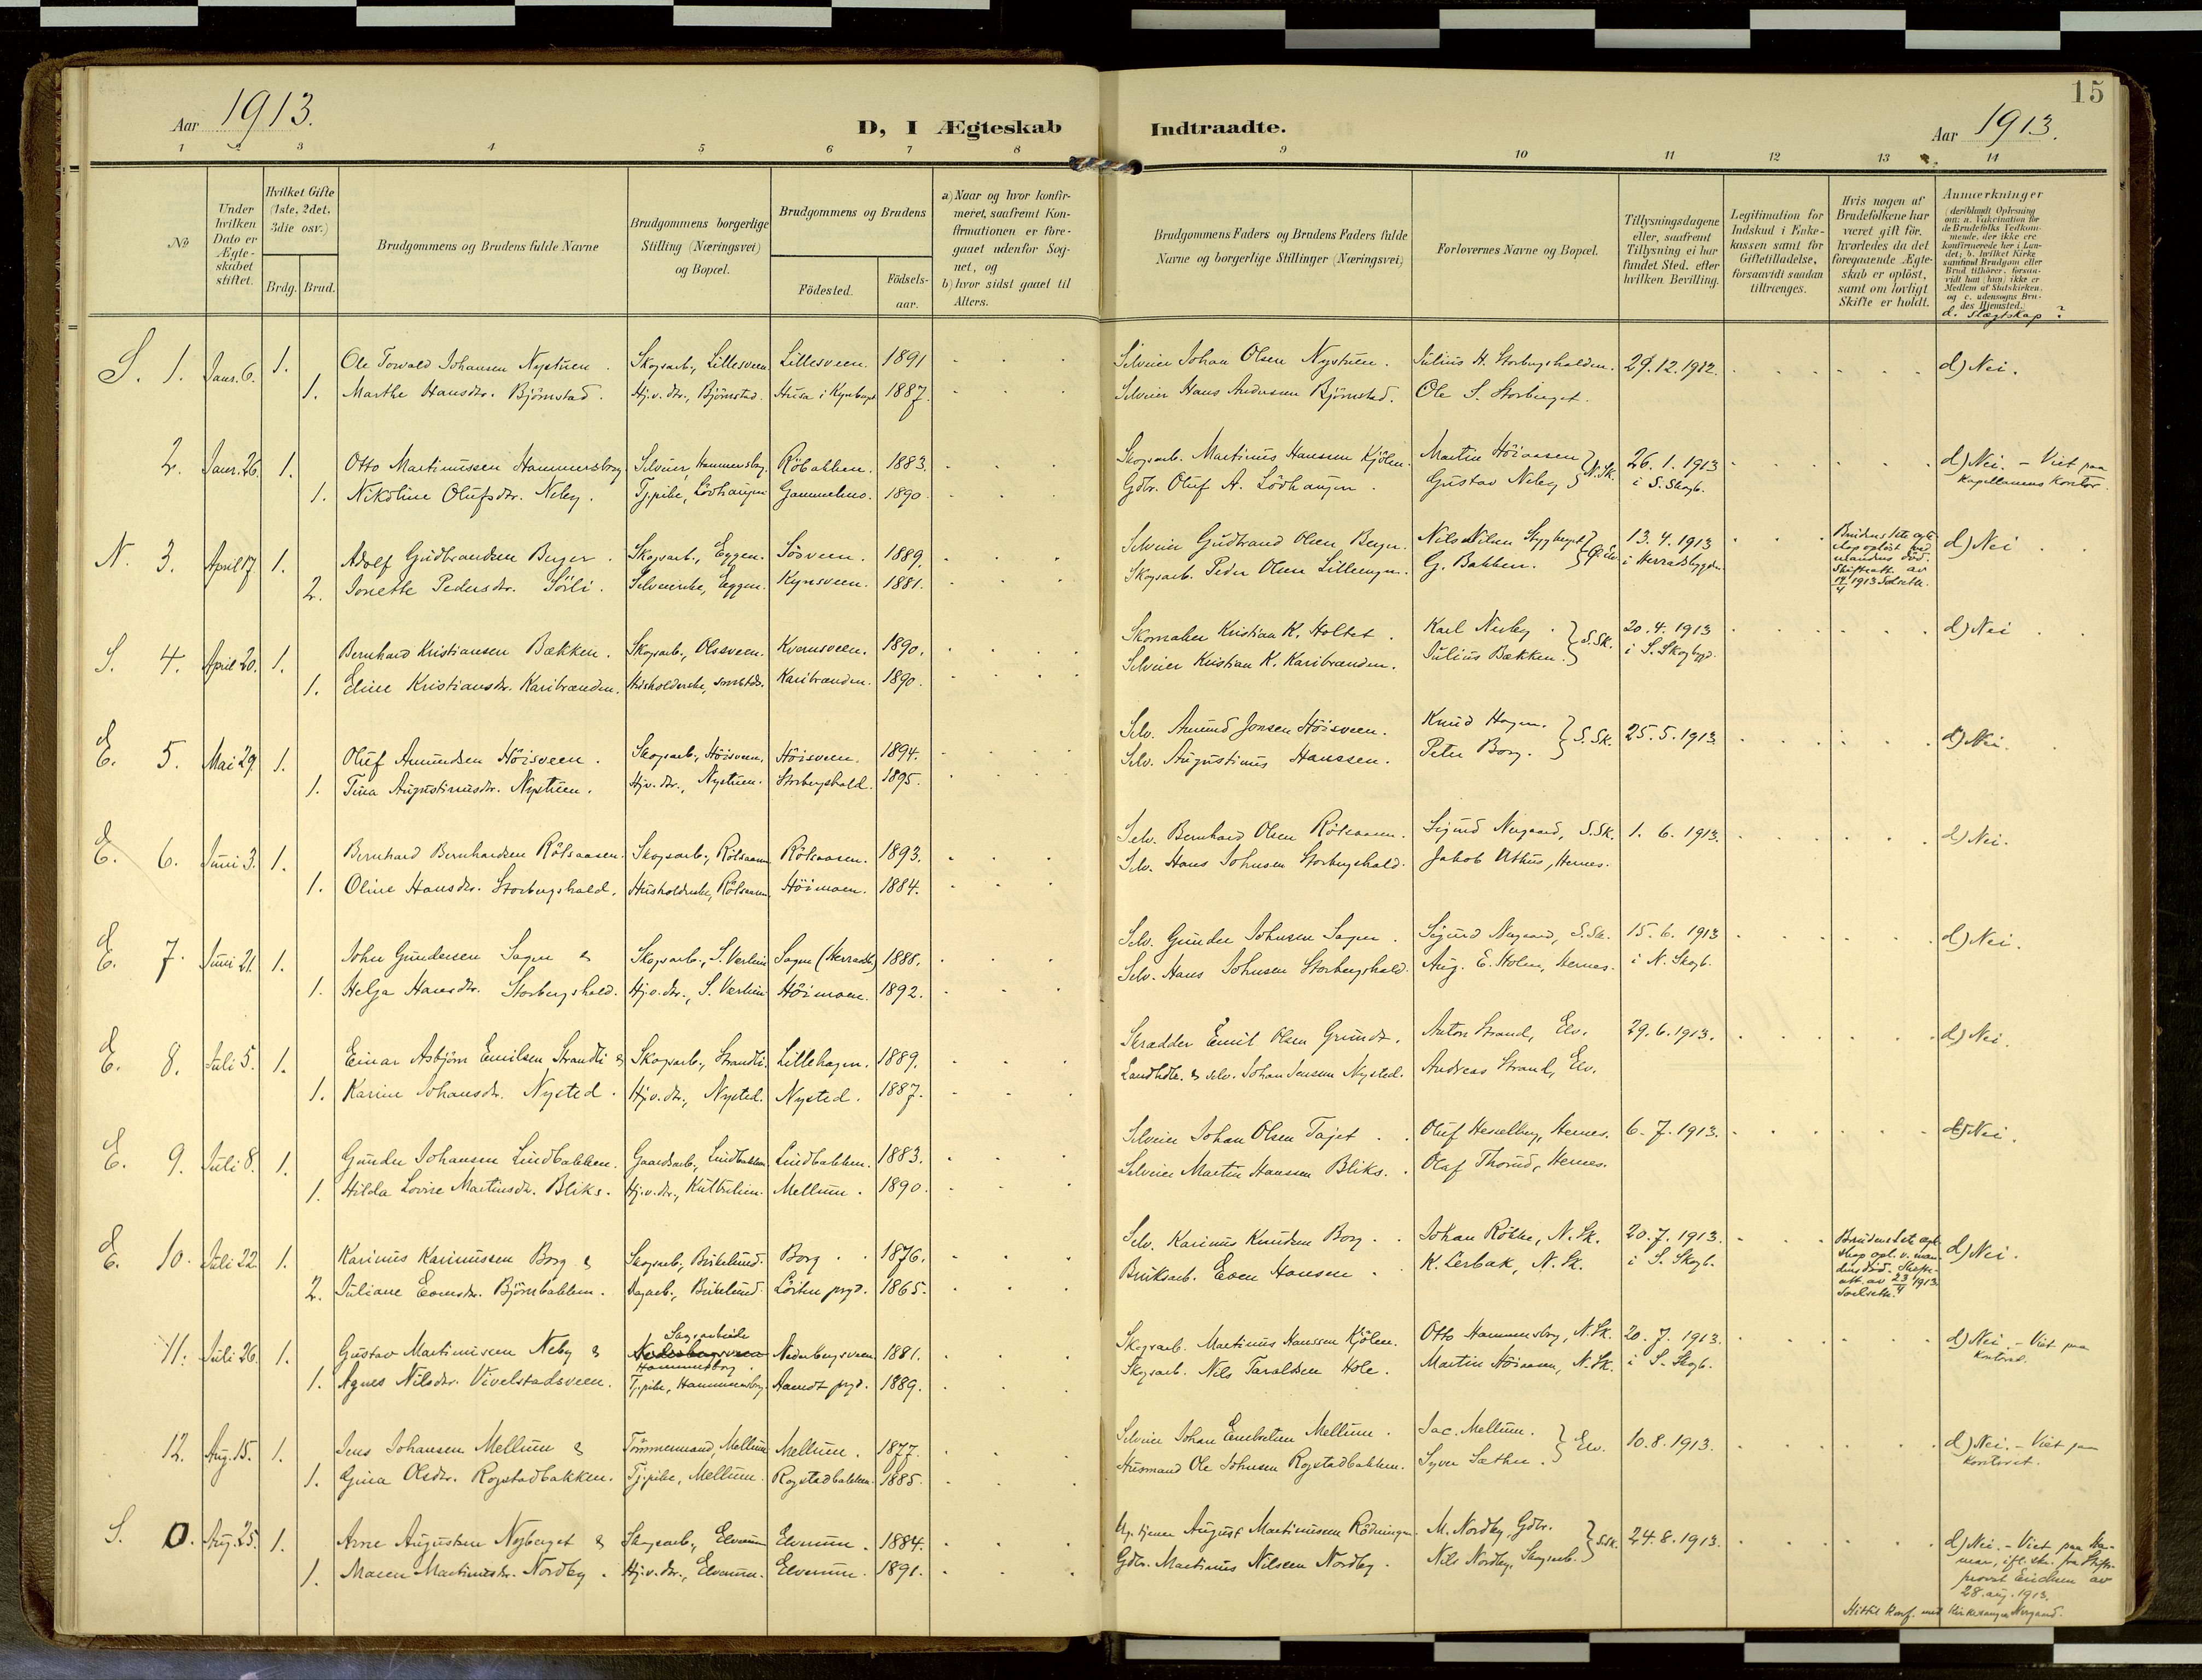 15
Aar 1913.
D, I Ægteskab Indtraadte.
Aar 1913.
1 2 3 4 5 6 7 8 9 10 11 12 13 14
No
Under hvilken Dato er Ægteskabet stiftet.
Hvilket Gifte (1ste, 2det, 3die osv.)
Brdg. Brud.
Brudgommens og Brudens fulde Navne
Brudgommens borgerlige Stilling (Næringsvei) og Bopæl.
Brudgommens og Brudens
Födested. Födsels-aar.
a) Naar og hvor konfirmeret, saafremt Konfirmationen er foregaaet udenfor Sognet, og
b) hvor sidst gaaet til Alters.
Brudgommens Faders og Brudens Faders fulde Navne og borgerlige Stillinger (Næringsvei)
Forlovernes Navne og Bopæl.
Tillysningsdagene eller, saafremt Tillysning ei har fundet Sted, efter hvilken Bevilling.
Legitimation for Indskud i Enkekassen samt for Giftetilladelse, forsaavidt saadan tiltrænges.
Hvis nogen af Brudefolkene har været gift för, hvorledes da det foregaaende Ægteskab er oplöst, samt om lovligt Skifte er holdt.
Anmærkninger
(deriblandt Oplysning om: a. Vakcination for de Brudefolks Vedkommende, der ikke ere konfirmerede her i Landet; b. hvilket Kirkesamfund Brudgom eller Brud tilhörer, forsaavidt han (hun) ikke er Medlem af Statskirken, og c. udensogns Brudes Hjemsted.)
d. Slægtskap?
S. 1. Janr. 6. 1. Ole Torvald Johansen Nystuen. Skogsarb., Lillesveen Lillesveen. 1891 Selveier Johan Olsen Nystuen. Julius H. Storbergshalden. 29.12.1912. d) Nei.
1. Marthe Hansdtr. Björnstad. Hj.v. dtr., Björnstad. 1887. Selveier Hans Andersen Björnstad. Ole S. Storberget.
2. Janr. 26. 1. Otto Martinussen Hammersborg. Selveier, Hammersborg. Röbakken. 1883. Skogsarb. Martinus Hansen Kjölen. Martin Höiaasen } N. Sk. 26.1.1913 d) Nei. - Viet paa
1. Nikoline Olufsdtr. Neby. Tj.pike, Lövhaugen Gammelmo. 1890. Gdbr. Oluf A. Lövhaugen. Gustav Neby i S. Skogb. Kapellanens Kontor.
N. 3. April 17 1. Adolf Gudbrandsen Berger. Skogsarb., Eggen. Sösveen. 1889. Selveier Gudbrand Olsen Berger. Nils Nilsen 13.4.1913 Brudens 1ste egteskap oplöst ved mandens död. Skifteatt. av 17/4 1913 d) Nei
2. Jonette Pedersdtr. Sörli. Selveierske, Eggen. Kynsveen. 1881. Skogsarb. Peder Olsen Lilleengen. G. Bakken. i Herradsbygden
S. 4. April 20. 1. Bernhard Kristiansen Bækken. Skogsarb., Olssveen. Kvernsveen. 1890. Skomaker Kristian K. Holtet. Karl Neby. } S. Sk. 20.4.1913 d) Nei
1. Eline Kristiansdtr. Karibrænden. Husholderske, smstds. Karibrænden. 1890. Selveier Kristian K. Karibrænden. Julius Bækken. i S. Skogbygd.
E. 5. Mai 29. 1. Oluf Amundsen Höisveen. Skogsarb., Höisveen. Höisveen. 1894. Selv. Amund Jonsen Höisveen. Knud Hagen. } S. Sk. 25.5.1913. d) Nei.
1. Tina Augustinusdtr. Nystuen. Hj.v. dtr., Nystuen. Storbergshald. 1895. Selv. Augustinus Hanssen. Peter Borg.
E. 6. Juni 3. 1. Bernhard Bernhardsen Rölsaasen. Skogsarb., Rölsaasen Rölsaasen. 1893. Selv. Bernhard Olsen Rölsaasen. Sigurd Nergaard, S. Sk. 1.6.1913. d) Nei.
1. Oline Hansdtr. Storbergshald. Husholderske, Rölsaasen Höimoen. 1884. Selv. Hans Johnsen Storbergshald. Jakob Uthus, Hernes.
E. 7. Juni 21. 1. John Gundersen Sagen & Skogsarb., S. Sagen (Herradsb.) 1888. Selv. Gunder Johnsen Sagen. Sigurd Nergaard, S. Sk. 15.6.1913 d) Nei.
1. Helga Hansdtr. Storbergshald. Hj.v. dtr., S. Höimoen. 1892. Selv. Hans Johnsen Storbergshald. Aug. E. Holen, Hernes. i N. Skogb.
E. 8. Juli 5. 1. Einar Asbjörn Emilsen Strandli & Skogsarb., Strandli. Lillehagen. 1889. Skrædder Emil Olsen Grundt. Anton Strand, Elv. 29.6.1913. d) Nei.
1. Karine Johansdtr. Nysted. Hj.v. dtr., Nysted. Nysted. 1887. Landhdl. & selv. Johan Jensen Nysted. Andreas Strand, Elv.
E. 9. Juli 8. 1. Gunder Johansen Lindbakken. Gaardsarb., Lindbakken. Lindbakken. 1883. Selveier Johan Olsen Tajet. Oluf Hesselberg, Hernes. 6.7.1913. d) Nei.
1. Hilda Lovise Martinsdtr. Bliks. Hj.v. dtr., Mellum. 1890. Selveier Martin Hanssen Bliks. Olaf Thorud, Hernes.
E. 10. Juli 22. 1. Karinus Karinussen Borg & Skogsarb., Birkelund. Borg. 1876. Selv. Karinus Knudsen Borg. Johan Rölke, N. Sk. 20.7.1913. Brudens 1ste egteskap opl. v. mandens död. Skifteatt. av 23/4 1913. d) Nei.
2. Juliane Evensdtr. Björnbakken. Dagarb., Birkelund. Löiten prgd. 1865. Bruksarb. Even Hansen. K. Lerbak, N. Sk. i S. Skogb.
11. Juli 26. 1. Gustav Martinussen Neby & Sagarbeide Hammersborg. Nederbergsveen. 1881. Skogsarb. Martinus Hanssen Kjölen. Otto Hammersborg, N. Sk. 20.7.1913. d) Nei. - Viet paa
1. Agnes Nilsdtr. Vivelstadsveen. Tj.pike, Hammersborg. Aamot prgd. 1889. Skogsarb. Nils Taraldsen Hole. Martin Höiaasen, N. Sk. i S. Skogb. Kontoret.
12. Aug. 15. 1. Jens Johansen Mellum & Tömmermand, Mellum Mellum. 1877. Selveier Johan Embretsen Mellum. Jac. Mellum. } Elv. 10.8.1913. d) Nei. - Viet paa
1. Gina Olsdtr. Rogstadbakken. Tj.pike, Mellum. Rogstadbakken. 1885. Husmand Ole Johnsen Rogstadbakken. Syver Sæther. Kontoret.
S. 0. Aug. 25. 1. Arne Augustsen Nyberget & Skogsarb., Elverum Elverum. 1884. August Martinussen Rödningen. M. Nordby, Gdbr. } S. Sk. 24.8.1913. d) Nei. - Viet paa Hamar, ifl. skr. fra Stiftsprovst Erichsen av 28. aug. 1913.
1. Maren Martinusdtr. Nordby. Hj.v. dtr., Elverum. Elverum. 1891. Gdbr. Martinus Nilsen Nordby. Nils Nordby, Skogsarb.
Hittil konf. med Kirkesanger Nergaard.